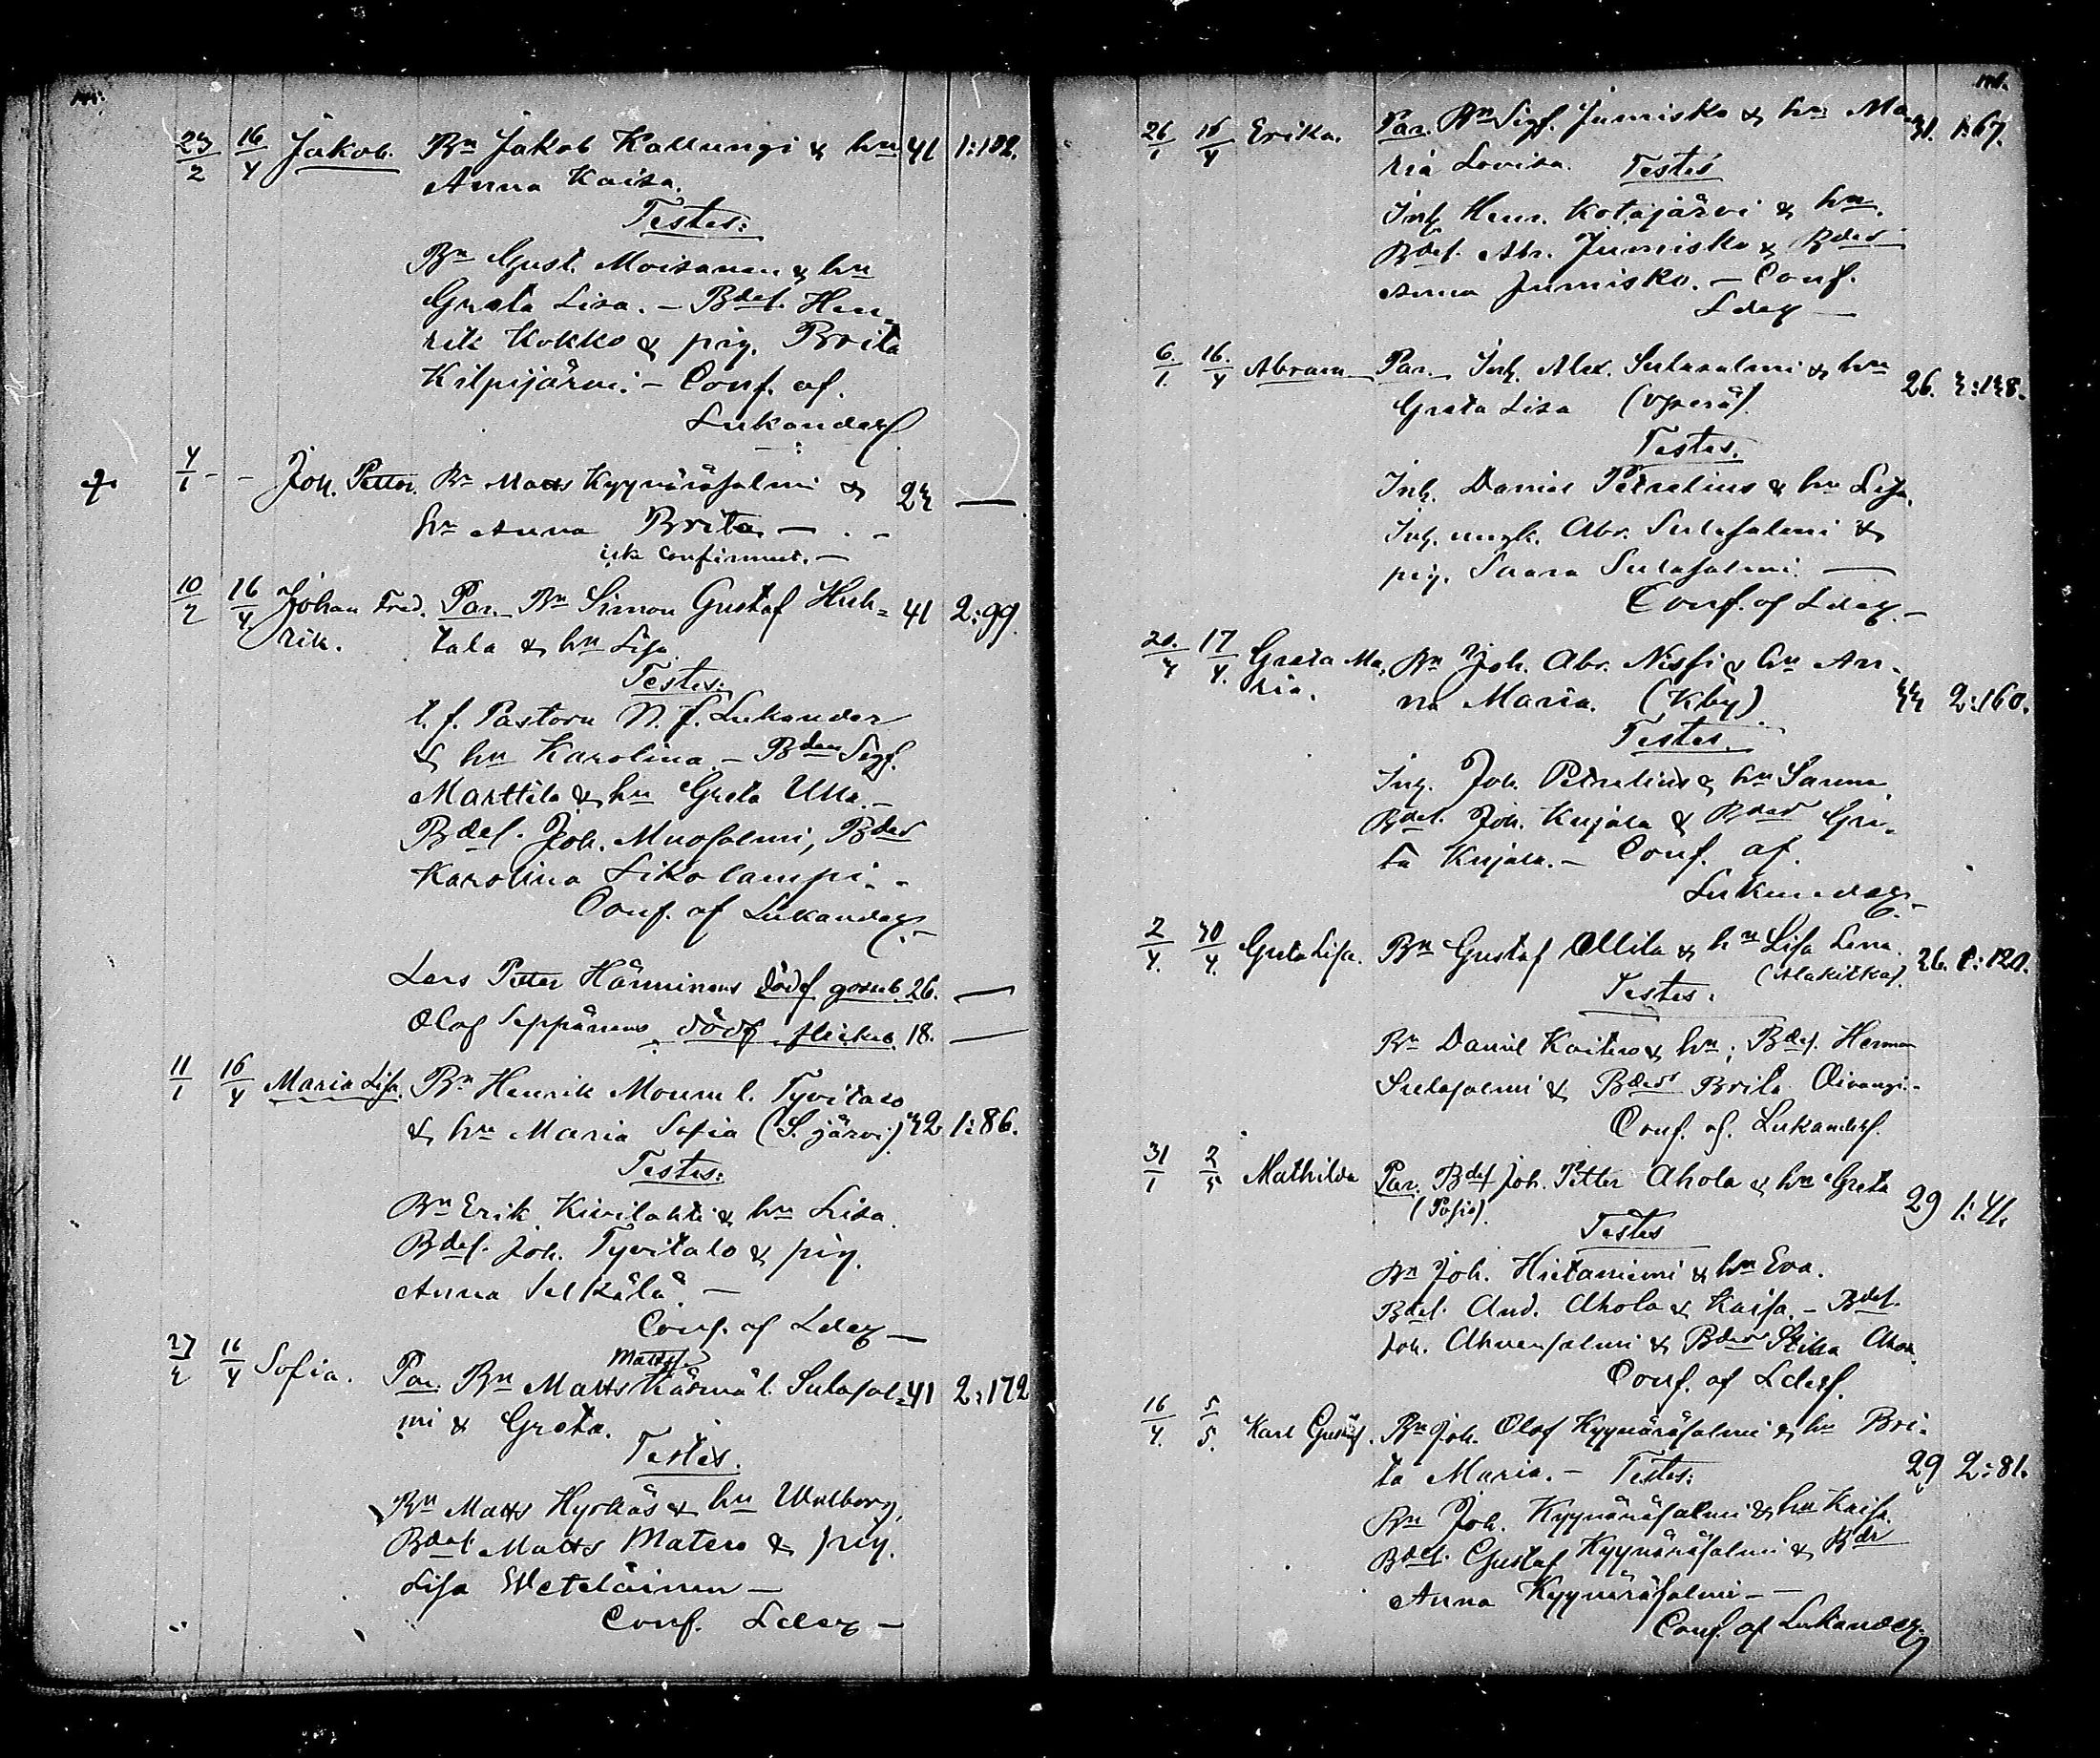 23/2 16/4 Jakob. Bn Jakob Kallungi & hn 41 1:102.
Anna Kaisa.
Testes:
Bn Gust. Moisanen & hn
Greta Lisa. – Bdes. Hen-
rik Kokko & pig. Brita
Kilpijärvi. – Conf. af.
Lukander
4/1 - - Joh. Petter. Bn Matts Kyynäräsalmi &
hn Anna Brita –
icke confirmut. –
10/2 16/4 Johan Fred. Par. Bn Simon Gustaf Huh= 41 2:99.
rik. tala & hn Lisa.
Testes:
t. f. Pastorn N. J. Lukander
& hn Karolina. – Bden Sigf.
Marttila & hn Greta Ulla. –
Bdes. Joh. Muosalmi, Bdes
Karolina Likolampi. –
Conf. af Lukander –
Lars Petter Hänninens dödf gosseb. 26. —
Olof Seppänens dödf flickeb. 18. —
11/1 16/4 Maria Lisa. Bn Henrik Mourul. Tyvitalo
& hn Maria Sofia (S. järvi) 32 1:86.
Testes:
Bn Erik Kivilahti & hn Lisa.
Bdes. Joh. Tyvitalo & pig.
Anna Selkälä. –
Conf. af Lder –
Mattss.
27/2 16/4 Sofia. Par. Bn Matts Kärnä l. Sulasal= 41 2:172
mi & Greta.
Testes.
Bn Matts Hyrkäs & hn Wulborg,
Bdes. Matts Matero & pig.
Lisa Weteläinen –
Conf. Lder –
26/1 16/4 Erika. Par. Bn Sigf. Jumisko & hn Ma- 31. 1:67.
ria Lovisa. Testes
Inh. Henr. Kotajärvi & hn.
Bdes. Abr. Jumisko & Bdes
Anna Jumisko. – Conf.
Lder —
6/1 16/4 Abram Par. Inh. Alex. Sulasalmi & hn 26. 2:138.
Greta Lisa (Yperä).
Testes.
Inh. Daniel Petrelius & hn Lisa.
Inh. ungk. Abr. Sulasalmi &
pig. Saara Sulasalmi. —
Conf. af Lder. –
20/3 17/4 Greta Ma- Bn Joh. Abr. Nissi & hn An-
ria. na Maria. (Kby) 33 2:160.
Testes.
Inh. Joh. Petrelius & hn Sanna
Bdes. Joh. Kujala & Bdes Gre-
ta Kujala. – Conf. af.
Lukander –
2/4 30/4 Greta Lisa. Bn Gustaf Ollila & hn Lisa Lena. 26. 1:120.
(Alakitka).
Testes.
Bn Daniel Kaitero & hn; Bdes. Herman
Sulasalmi & Bdes Brita Oivangi. –
Conf. af. Lukander.
31/1 2/5 Mathilda Par. Bdes Joh. Petter Ahola & hn Greta 29 1:41.
(Posio).
Testes
Bn Joh. Hietaniemi & hn Eva.
Bdes. And. Ahola & Kaisa. – Bdes.
Joh. Ahvensalmi & Bdes Stina
Conf. af Lder.
16/4. 5/5. Karl Gustaf. Bn Joh. Olof Kyynäräsalmi & hn Bri-
ta Maria. – Testes: 29 2:81.
Bn Joh. Kyynäräsalmi & hn Kaisa.
Bdes. Gustaf Kyynäräsalmi & Bdr
Anna Kyynäräsalmi –
Conf. af Lukander.